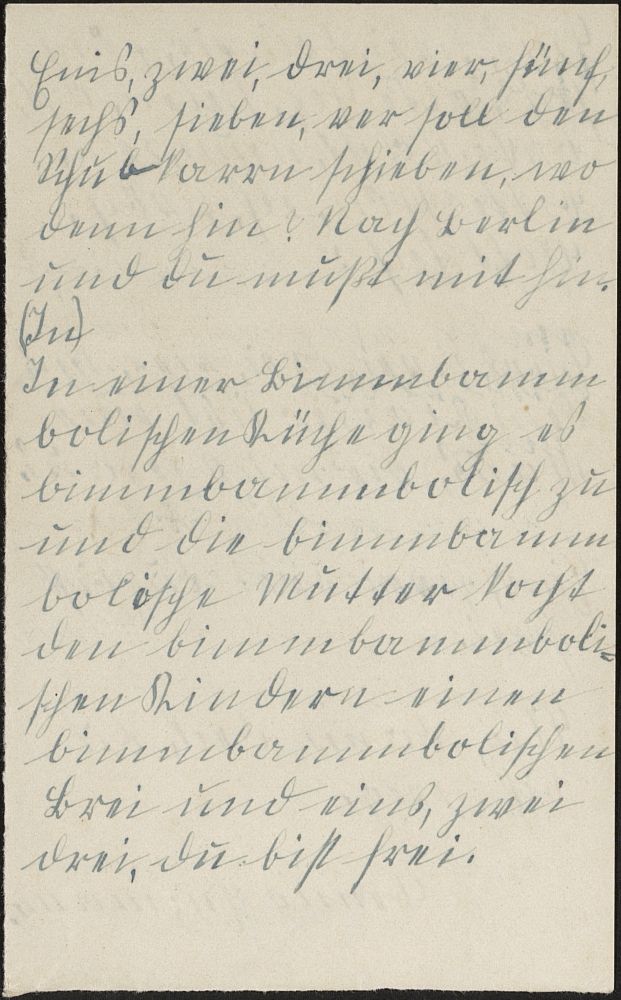 Enis, zwei, drei, vier, fünf,
sechs, sieben, wer soll den
Schubkarrn schieben, wo
denn hin? Nach Berlin
und du mußt mit hin.
(In)
In einer Bimmbamm
bolischen Küche ging es
bimmbammbolisch zu
und die bimmbamm
bolische Mutter kocht
den bimmbammboli=
schen Kindern einen
bimmbammbolischen
Brei und eins, zwei
drei, du bist frei.